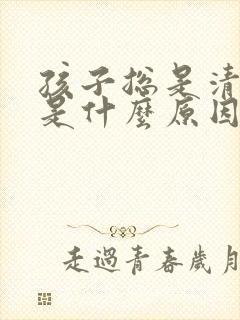 孩子總是清
是什麼原因
走過青春歲月